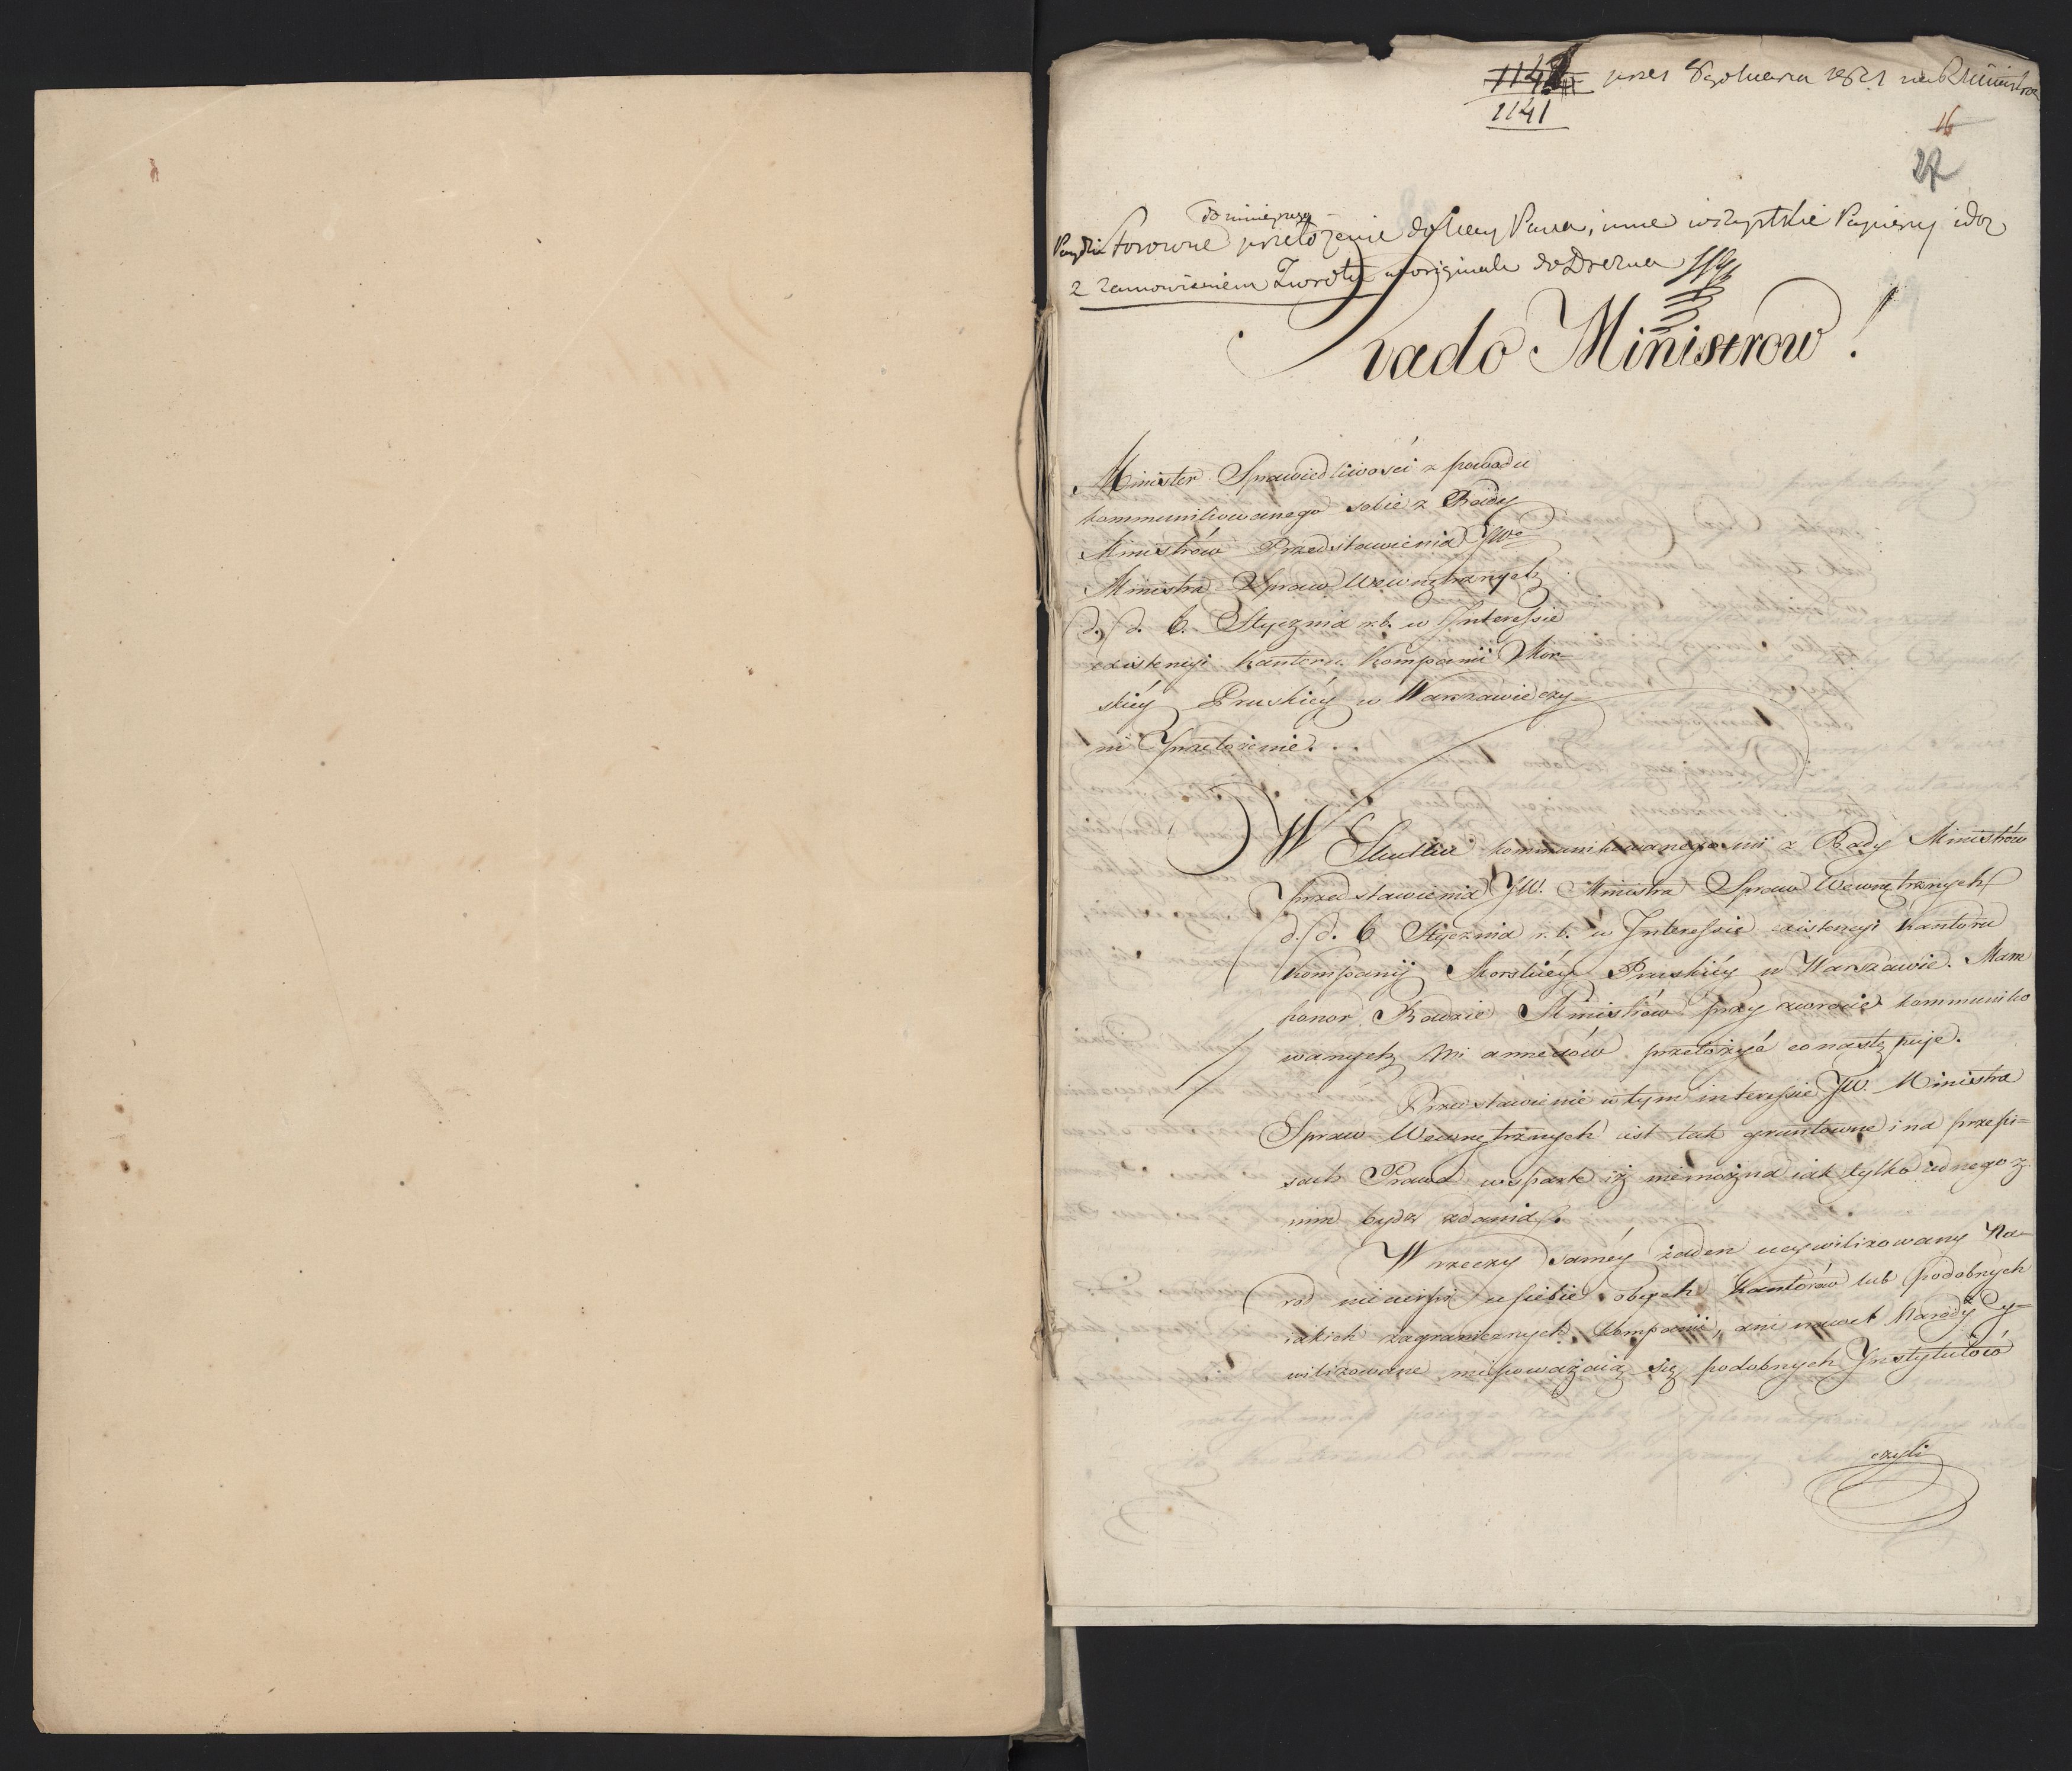 1141
16
27
do niniejszego
przełożenie do Pana, inne wszystkie Papiery
z zamówieniem Zwrotu w originale do Drezna
Rado Ministrow!
Minister Sprawiedliwości z powodu
kommunikowanego sobie z Rady
Ministrów Przedstawienia JWo
Ministra Spraw Wewnętrznych
d. d. 6. Stycznia r.b. w Interessie
existencyi kantoru Kompanii Mor-
skiéy Pruskiéy w Warszawie czy-
ni Przełożenie.
W Skutku kommunikowanego mi z Rady Ministrów
Przedstawienia JW. Ministra Spraw Wewnętrznych
d. d. 6 Stycznia r. b. w Interessie existencyi Kantoru
Kompanij Morskiéy Pruskiéy w Warszawie. Mam
honor Radzie Ministrów przy zwrocie kommuniko
wanych mi annexów przełożyć co następuje.
Przedstawienie w tym interessie JW. Ministra
Spraw Wewnętrznych iest tak gruntowne i na przepi=
sach Prawa wsparte iż niemożna iak tylko iednego z
nim bydź zdania.
W rzeczy saméy żaden ucywilizowany Na-
ród niecierpi u siebie obcych Kantorów lub podobnych
iakich zagranicznych Kompanii, ani nawet Narody Cy=
wilizowane niepoważaią się podobnych Instytutów
czyli